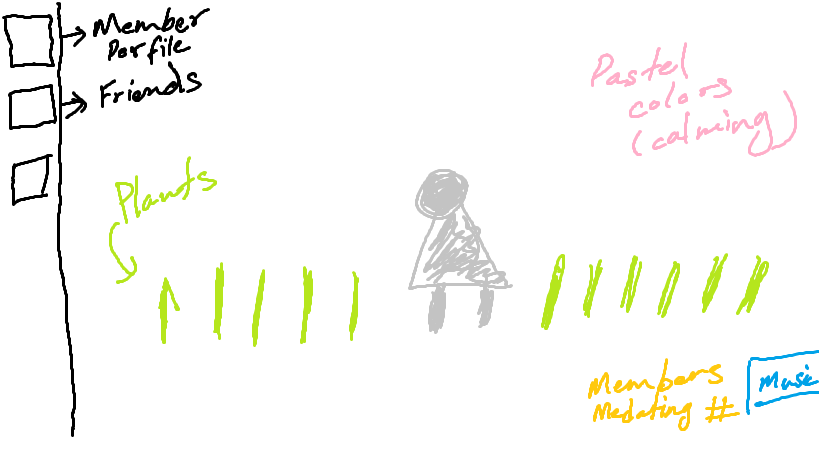 Member
Porfile
Friends
Pastel
colors
(calming)
Plants
Members
Medating #
Music